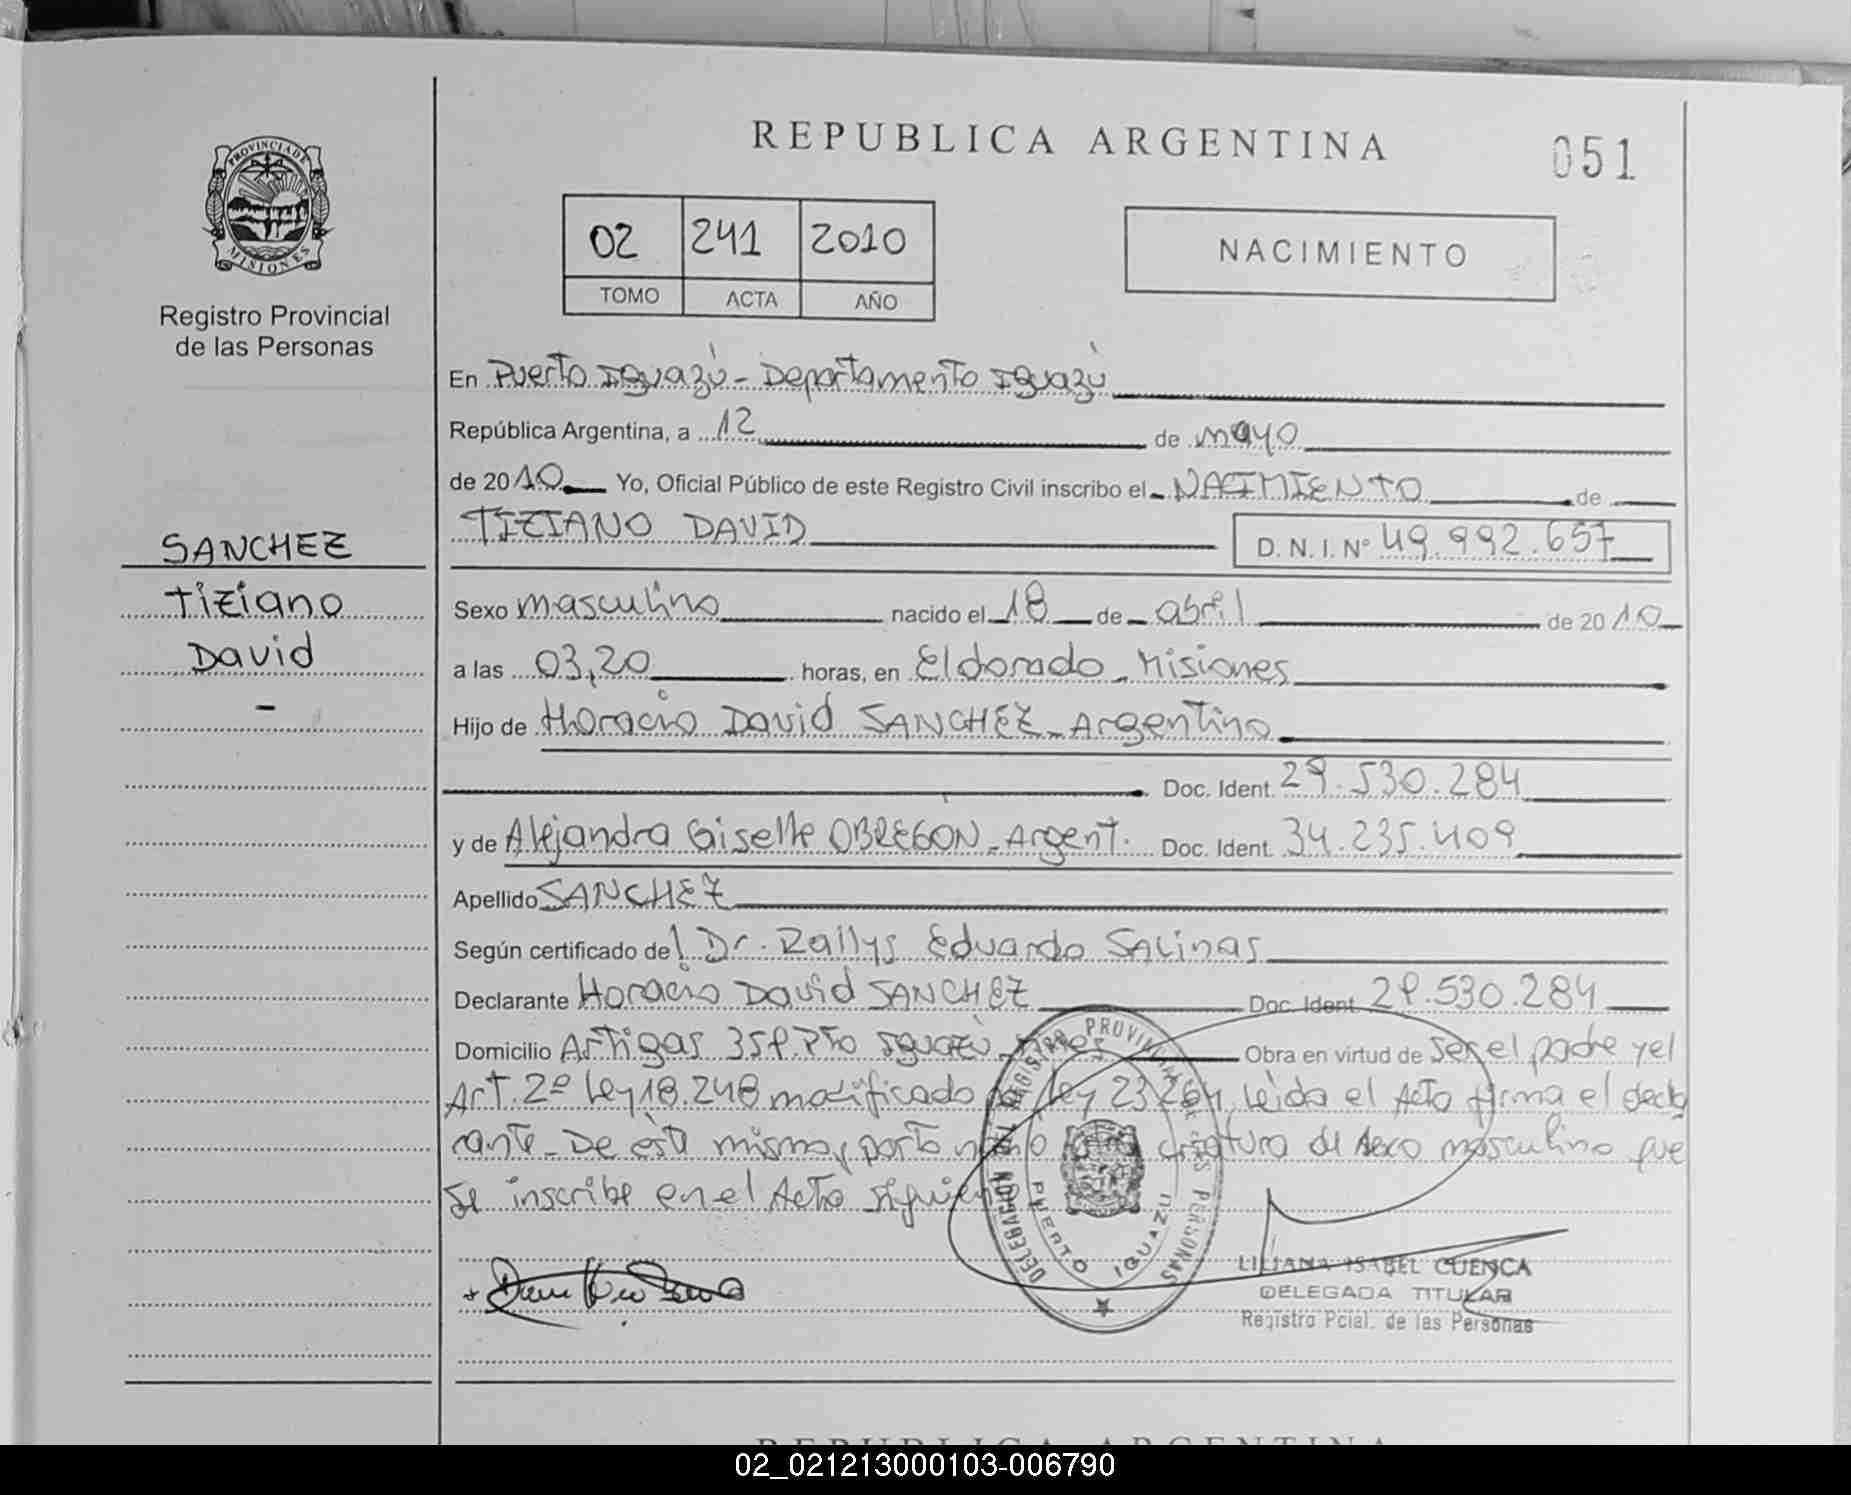 REPUBLICA ARGENTINA
051
PROVINCIA DE
MISIONES
Registro Provincial
de las Personas
02 241 2010
TOMO ACTA AÑO
NACIMIENTO
En Puerto Iguazú - Departamento Iguazú
República Argentina, a 12 de mayo
de 2010 Yo, Oficial Público de este Registro Civil inscribo el NACIMIENTO de
TIZIANO DAVID D. N. I. Nº 49.992.657
SANCHEZ
Tiziano
David
-
Sexo masculino nacido el 18 de abril de 2010
a las 03,20 horas, en Eldorado - Misiones
Hijo de Horacio David SANCHEZ - Argentino
Doc. Ident. 29.530.284
y de Alejandra Giselle OBREGON - Argent. Doc. Ident. 34.235.409
Apellido SANCHEZ
Según certificado del Dr. Rallys Eduardo Salinas
Declarante Horacio David SANCHEZ Doc. Ident. 29.530.284
Domicilio Artigas 359. Pto Iguazú Obra en virtud de ser el padre y el
Art. 2º Ley 18.248 modificado Ley 23.264, leída el Acta firma el decla
rante - De este mismo parto nació una criatura de sexo masculino que
se inscribe en el Acta siguiente
DELEGACION REGISTRO PROVINCIAL DE LAS PERSONAS
PUERTO IGUAZU
LILIANA ISABEL CUENCA
DELEGADA TITULAR
Registro Pcial. de las Personas
REPUBLICA ARGENTINA
02_021213000103-006790